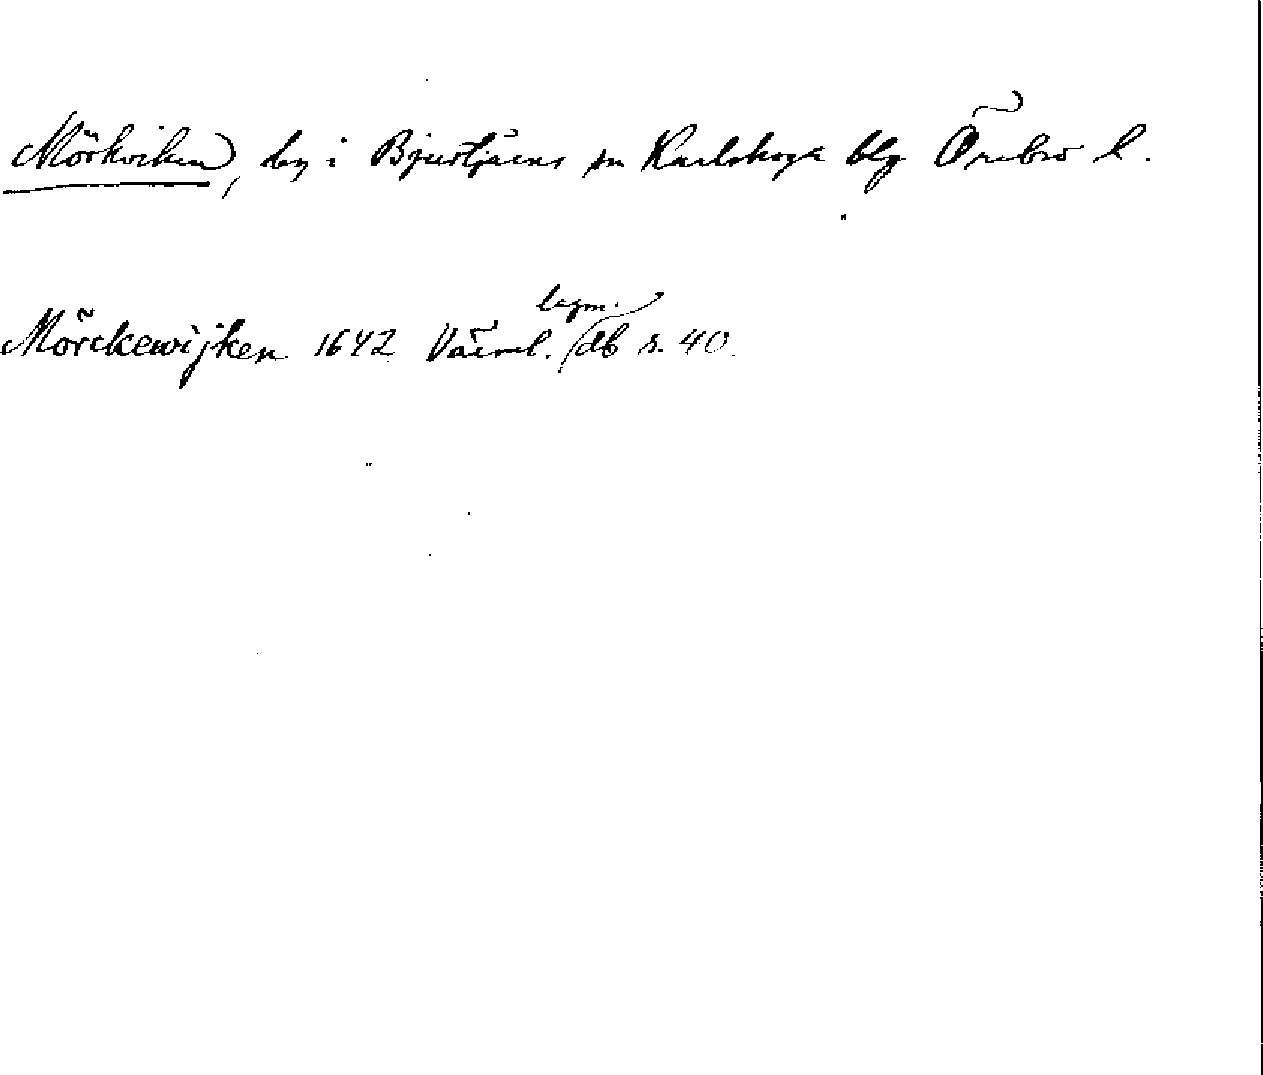 Mörkviken, by i Bjurtjärns sn Karlskoga blg Örebro l.
Mörckewijken 1642 Värml. lagm. db s. 40.